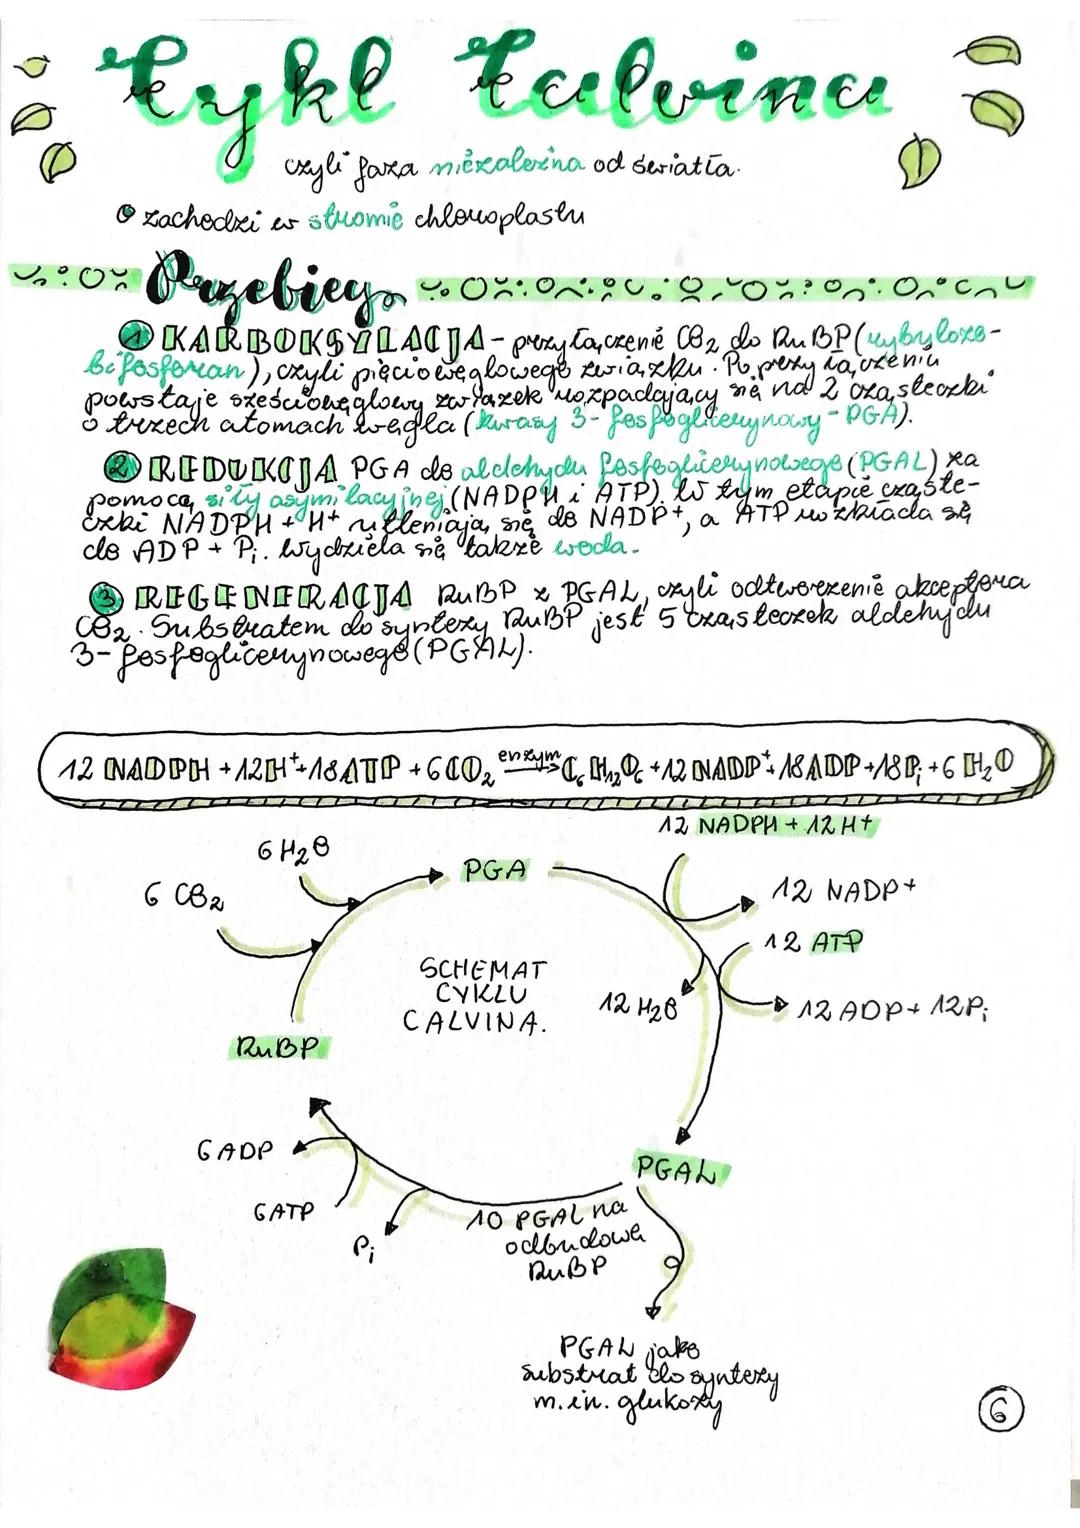 Cykl Calvina
czyli faza niezależna od światła.
zachodzi w stromie chloroplastu
Przebieg
1 KARBOKSYLACJA - przyłączenie CO2 do RuBP (rybulozo-
bifosforan), czyli pięciowęglowego związku. Po przyłączeniu
powstaje sześciowęglowy związek rozpadający się na 2 cząsteczki
o trzech atomach węgla (kwasy 3-fosfoglicerynowy - PGA).
2 REDUKCJA PGA do aldehydu fosfoglicerynowego (PGAL) za
pomocą siły asymilacyjnej (NADPH i ATP). W tym etapie cząste-
czki NADPH + H+ utleniają się do NADP+, a ATP rozkłada się
do ADP + Pi. Wydziela się także woda.
3 REGENERACJA RuBP z PGAL, czyli odtworzenie akceptora
CO2. Substratem do syntezy RuBP jest 5 cząsteczek aldehydu
3-fosfoglicerynowego (PGAL).
12 NADPH + 12H+ + 18ATP + 6CO2 enzym → C6H12O6 + 12 NADP+ + 18ADP + 18Pi + 6 H2O
12 NADPH + 12H+
6 H2O
PGA
6 CO2
12 NADP+
12 ATP
SCHEMAT
CYKLU
CALVINA.
12 H2O
12 ADP + 12Pi
RuBP
6 ADP
PGAL
6ATP
Pi
10 PGAL na
odbudowę
RuBP
PGAL jako
substrat do syntezy
m.in. glukozy
6